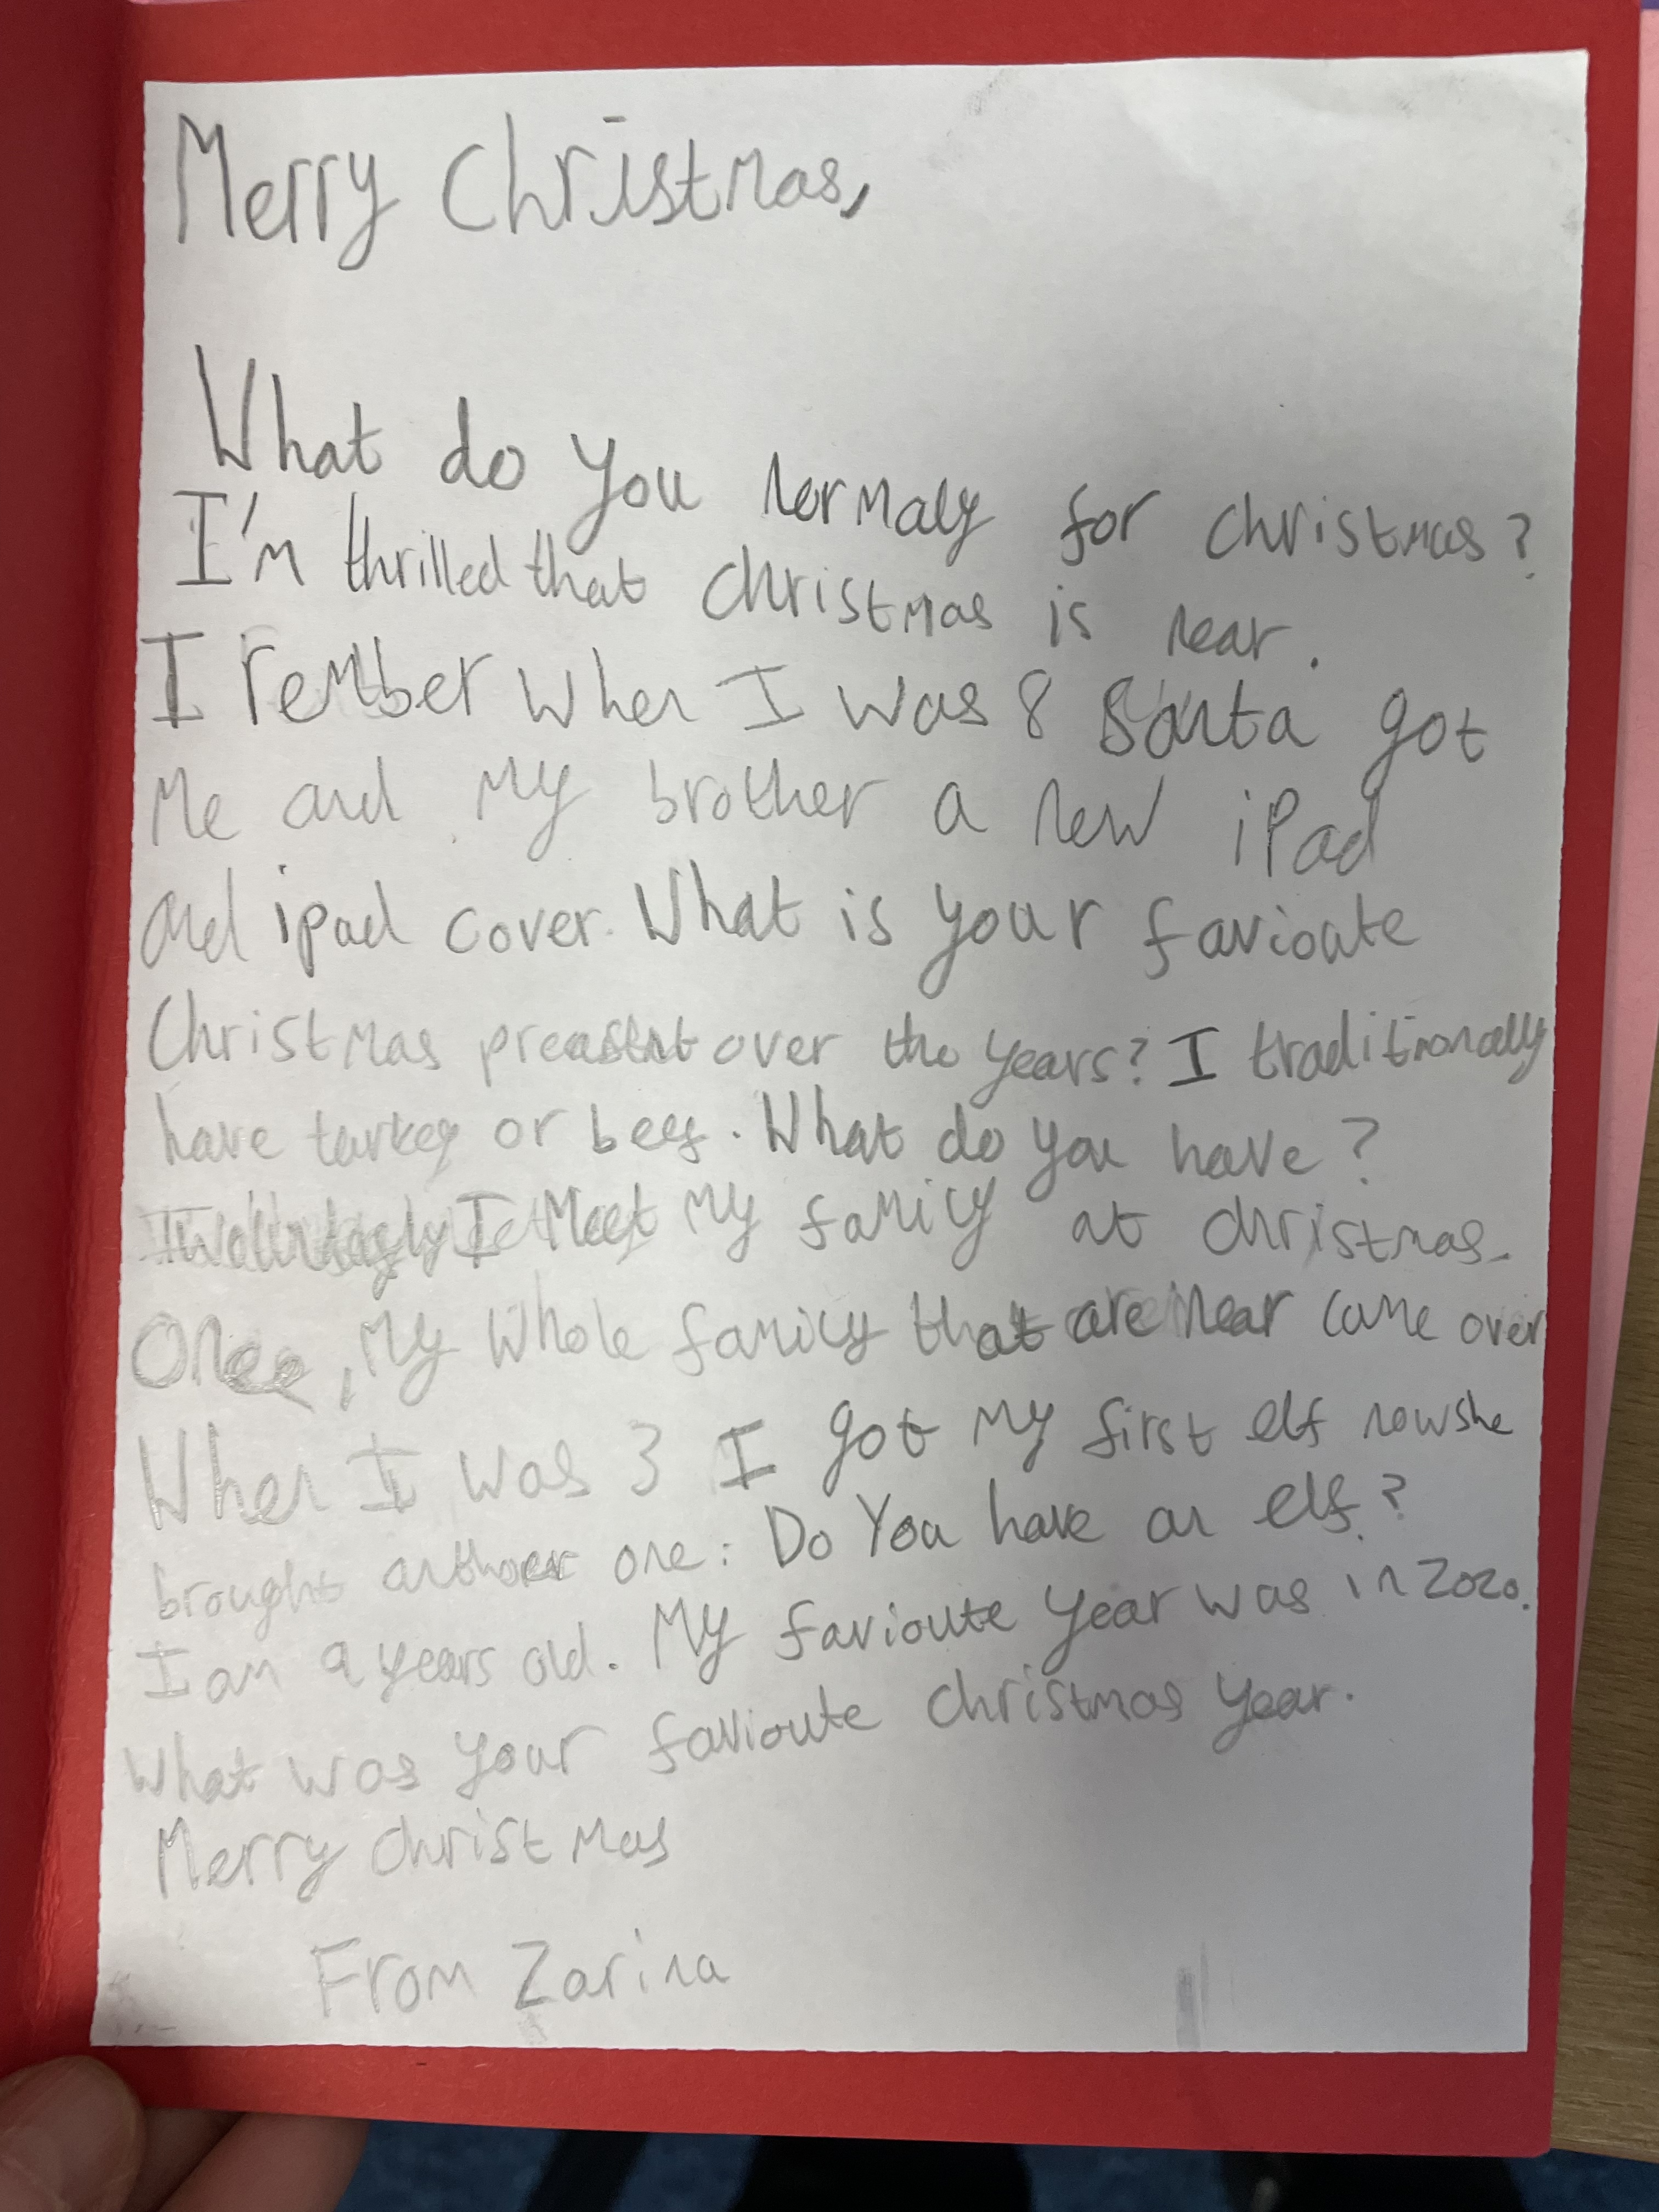 Merry Christmas,
What do you normaly for christmas?
I'm thrilled that christmas is near.
I rember when I was 8 Santa got
Me and My brother a new iPad
and ipad cover. What is your favioute
Christmas preasent over the years? I traditionally
have turkey or beef. What do you have?
I Meet My family at christmas.
Once, My whole family that are near came over
When I was 3 I got My first elf now she
brought anthoer one. Do You have an elf?
I am 9 years old. My favioute year was in 2020.
What was your favioute christmas year.
Merry christmas
From Zarina